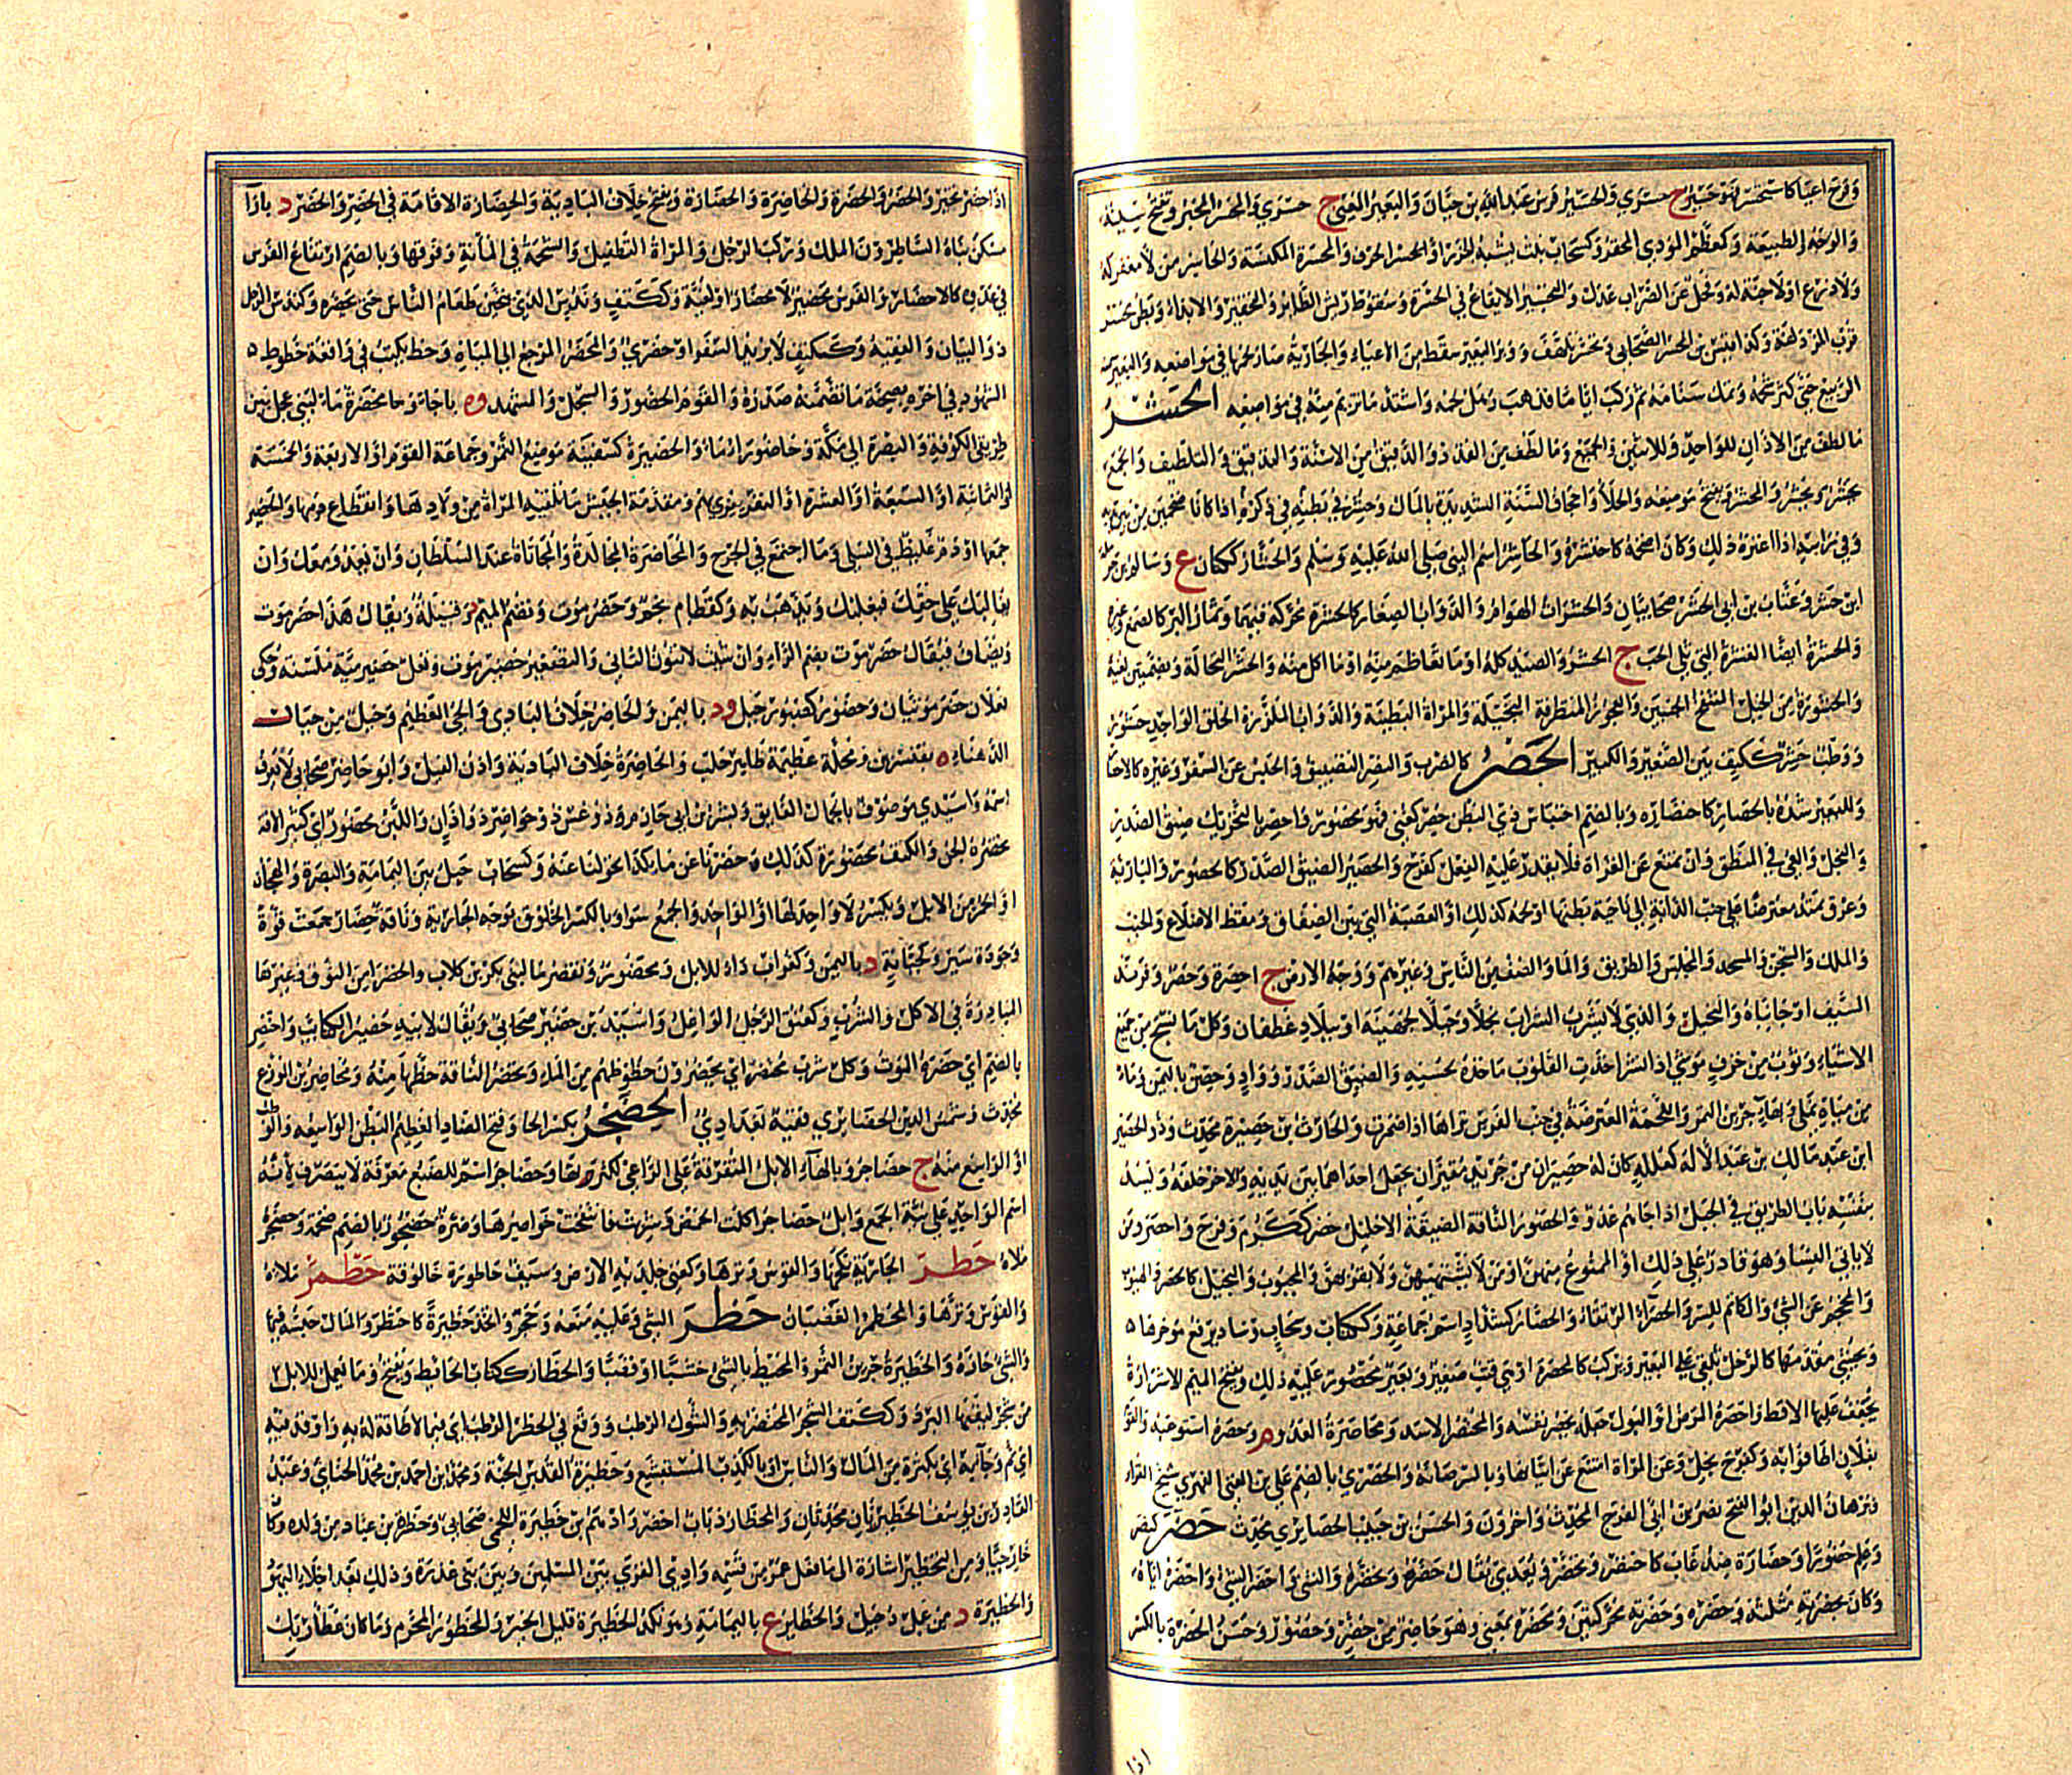 وفرح اعيا كاستحسر فهو حسير ج حسرى والحسير فرس عبد الله بن حيان والبعير المعيى ج حسرى والمحسر المخبر وتفتح سينه
والوجه والطبيعة وكمعظم المؤذى المحقر وكسحاب نبات يشبه الجزر او الحسر الحرف والمحسرة المكنسة والحاسر من لا مغفر له
ولا درع او لا جنة له وفحل عن الضراب عدل والتحسير الايقاع في الحسرة وسقوط ريش الطائر والتحقير والايذاء وبطن محسر
قرب المزدلفة وكذا قيس بن المحسر الصحابي وتحسر تلهف ووبر البعير سقط من الاعياء والجارية صار لحمها في مواضعه والبعير سمنه
الربيع حتى كثر شحمه وتمك سنامه ثم ركب اياما فذهب رهل لحمه واشتد ما تزيم منه في مواضعه الحشر
ما لطف من الاذان للواحد وللاثنين والجميع وما لطف من القذذ والدقيق من الاسنة والتدقيق والتلطيف والجمع
يحشر ويحشر والمحشر ويفتح موضعه والجلاء واجحاف السنة الشديدة بالمال وحشر في بطنه في ذكره اذا كانا ضخمين من بين يديه
وفي راسه اذا اعتره ذلك وكان اضخمه كاحتشر والحاشر اسم النبي صلى الله عليه وسلم والحشار ككتان ع وسالم بن حرملة
ابن حشر وعتاب بن ابي الحشر صحابيان والحشرات الهوام والدواب الصغار كالحشرة محركة فيهما وثمار البر كالصمغ وغيره
والحشرة ايضا القشرة التي تلي الحب ج الحشر والصيد كله او ما تعاظم منه او ما اكل منه والحشر النخالة وبضمتين لغية
والحشورة من الخيل المنتفخ الجنبين والعجوز المتظرفة البخيلة والمراة البطينة والدواب الملززة الخلق الواحد حشور
ووطب حشر ككتف بين الصغير والكبير الحصر كالضرب والنصر التضييق والحبس عن السفر وغيره كالاحصار
وللبعير شده بالحصار كاحتصاره وبالضم احتباس ذي البطن حصر كعني فهو محصور واحصر بالتحريك ضيق الصدر
والبخل والعي في المنطق وان يمتنع عن القراة فلا يقدر عليه الفعل كفرح والحصير الضيق الصدر كالحصور والبارية
وعرق يمتد معترضا على جنب الدابة الى ناحية بطنها او لحمه كذلك او العصبة التي بين الصفاق ومقط الاضلاع والجنب
والملك والسجن والمسجد والمجلس والطريق والماء والصف من الناس وغيرهم ووجه الارض ج احصرة وحصر وفرند
السيف او جانباه والبخيل والذي لا يشرب الشراب بخلا وجبلا لجهينة او ببلاد غطفان وكل ما نسج من جميع
الاشياء وثوب مزخرف موشى اذا نشر اخذت القلوب ماخذه لحسنه والضيق الصدر وواد وحصن باليمن وماء
من مياه نملى وبهاء جرين التمر واللحمة المعترضة في جنب الفرس تراها اذا ضمر والحارث بن حصيرة محدث وذو الحصير
ابن عبد مالك بن عبد الالة كعلة كان له حصيران من جريد مقيران يجعل احداهما بين يديه والاخر خلفه ويسد
بنفسه باب الطريق في الجبل اذا جاءهم عدو والحصور الناقة الضيقة الاحليل حصر ككرم وفرح واحصر ومن
لا ياتي النساء وهو قادر على ذلك او الممنوع منهن او من لا يشتهيهن ولا يقربهن والمجبوب والبخيل كالحصر والهيوب
والمحجم عن الشي والكاتم للسر والحصراء الرتقاء والحصار كشداد اسم جماعة وككتاب وسحاب وساد يرفع موخرها
ويحشى مقدمها كالرحل يلقى على البعير ويركب كالمحصرة او هي قتب صغير وبعير محصور عليه ذلك وبفتح الميم الاشرارة
يجفف عليها الاقط واحصره المرض او البول جعله يحصر نفسه والمحتصر الاسد ومحاصرة العدو م وحصره استوعبه والقوم
بفلان اطافوا به وكفرح بخل وعن المراة امتنع عن اتيانها وبالسر صانه والحصري بالضم علي بن الغني الفهري شيخ القراء
وبرهان الدين ابو الفتح نصر بن ابي الفرج المحدث واخرون والحسن بن حبيب الحصايري محدث حضر كنصر
وعلم حضورا وحضارة ضد غاب كاحتضر وتحضر ويعدى يقال حضره وتحضره والشي واحضر الشي واحضره اياه
وكان بحضرته مثلثة وحضره وحضرته محركتين ومحضره بمعنى وهو حاضر من حضر وحضور وحسن الحضرة بالكسر
اذا
اذا حضر بخير والحضر والحضرة والحاضرة والحضارة ويفتح خلاف البادية والحضارة الاقامة في الحضر والحضر د بازاء
مسكن بناه الساطرون الملك وركب الرجل والمراة التطفيل والشحمة في المانة وفوقها وبالضم ارتفاع الفرس
في عدوه كالاحضار والفرس محضير لا محضار او لغية وككتف وندس الذي يتحين طعام الناس حتى يحضره وكندس الرجل
ذو البيان والفقيه وككتف لا يريد السفر او حضري والمحضر المرجع الى المياه وخط يكتب في واقعة خطوط
الشهود في اخره بصحة ما تضمنه صدره والقوم الحضور والسجل والمشهد وة باجاء ومحضرة ماء لبني عجل بين
طريقي الكوفة والبصرة الى مكة وحاضوراء ماء والحضيرة كسفينة موضع التمر وجماعة القوم او الاربعة والخمسة
او الثمانية او السبعة او العشرة او النفر يغزى بهم ومقدمة الجيش ما تلقيه المراة من ولادها وانقطاع دمها والحضير
جمعها او دم غليظ في السلى وما اجتمع في الجرح والمحاضرة المجالدة والمجاثاة عند السلطان وان يعدو معك وان
يغالبك على حقك فيغلبك ويذهب به وكقطام نجم وحضر موت وتضم الميم د وقبيلة ويقال هذا حضر موت
ويضاف فيقال حضر موت بضم الراء وان شئت لا تنون الثاني والتصغير حضير موت ونعل حضرمية ملسنة وحكي
نعلان حضرموتيتان وحضور كصبور جبل ود باليمن والحاضر خلاف البادي والحي العظيم وحبل من حبال
الدهناء ة بقنسرين ومحلة عظيمة بظاهر حلب والحاضرة خلاف البادية واذن الفيل وابو حاضر صحابي لا يعرف
اسمه واسيدي موصوف بالجمال الفايق وبشر بن ابي حازم وذو غش ذو حواضر ذو اذان واللبن محضور اي كثير الافة
تحضره الجن والكنف محضورة كذلك وحضرنا عن ماء كذا تحولنا عنه وكسحاب جبل بين اليمامة والبصرة والهجان
او الحمر من الابل ويكسر لا واحد لها او الواحد والجمع سواء وبالكسر الخلوق بوجه الجارية وناقة حضار جمعت قوة
وجودة سير وكجبانة د باليمن وكغراب داء للابل ومحضوراء وتقصر ماء لبني بكر بن كلاب والحضراء من النوق وغيرها
المبادرة في الاكل والشرب وكعنق الرجل الواغل واسيد بن حضير صحابي ويقال لابيه حضير الكتائب واحتضر
بالضم اي حضره الموت وكل شرب محتضر اي يحضرون حظوظهم من الماء وتحضر الناقة حظها منه ومحاضر بن المورع
محدث وشمس الدين الحضايري فقيه بغدادي الحضجر بكسر الحا وفتح الضاد العظيم البطن الواسعه والوطب
او الواسع منه ج حضاجر وبالهاء الابل المتفرقة على الراعي لكثرتها وحضاجر اسم للضبع معرفة لا ينصرف لانه
اسم الواحد على بنية الجمع وابل حضاجر اكلت الحمض وشربت فانتفخت خواصرها ووترة حضجور بالضم ضخمة وحضجره
ملاه حطر الجارية نكحها والقوس وترها وكعني جلد به الارض وسيف حاطورة حالوقة حطمر ملاءة
والقوس وترها والمحطمر الغضبان حظر الشي وعليه منعه وحجر واتخذ حظيرة كاحتظر والمال حبسه فيها
والشي حازه والحظيرة جرين التمر والمحيط بالشي خشبا او قصبا والحظار ككتاب الحائط ويفتح وما يعمل للابل
من شجر ليقيها البرد وككتف الشجر المحتظر به والشوك الرطب ووقع في الحظر الرطب اي بما لا طاقة له به واوقد فيه
اي نم وجاء به اي بكثرة من المال والناس او بالكذب المستشنع وحظيرة القدس الجنة ومحمد بن احمد بن محمد الجبائي وعبد
القادر بن يوسف الحظيريان محدثان والمحظار ذباب اخضر وادهم بن حظيرة اللخمي صحابي وحظرة بن عباد من ولده وكان
خارجيا وزمن التحظير اشارة الى ما فعل عمر من قسمه وادي القرى بين المسلمين وبين بني عذرة وذلك بعد اجلاء اليهود
والحظيرة د من عمل دجيل والحظاير ع باليمامة وهو نكد الحظيرة قليل الخير والحظور المحرم وما كان عطاء ربك